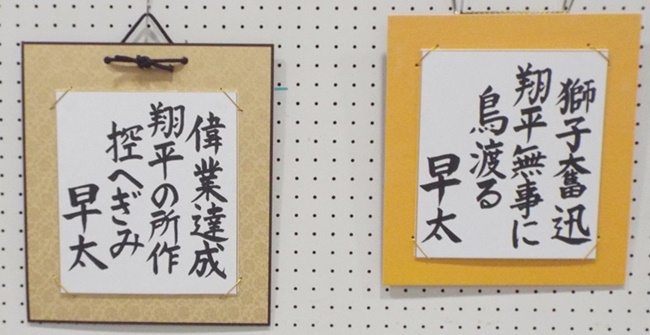 偉業達成
翔平の所作
控へぎみ
早太
獅子奮迅
翔平無事に
鳥渡る
早太